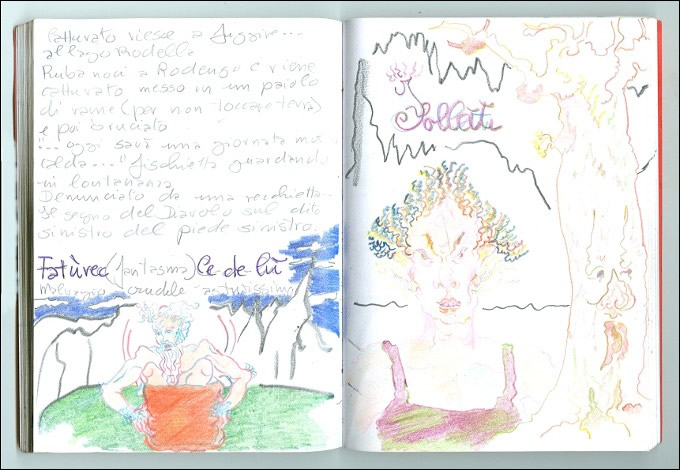 catturato riesce a fuggire...
al lago Rodella
Ruba noci a Rodengo e viene
catturato messo in un paiolo
di rame (per non toccare terra)
e poi bruciato
"... oggi sarà una giornata molto
calda..." fischietta guardando
in lontananza
Denunciato da una vecchietta
Se segno del Diavolo sul dito
sinistro del piede sinistro
Fatùrec (fantasma) Ce-de-lù
malvagio crudele astutissimo
Sollètti